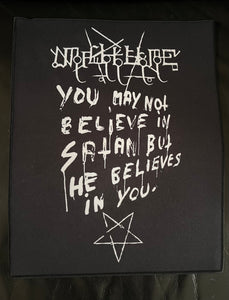 YOU MAY NOT
BELIEVE IN
SATAN BUT
HE BELIEVES
IN YOU.